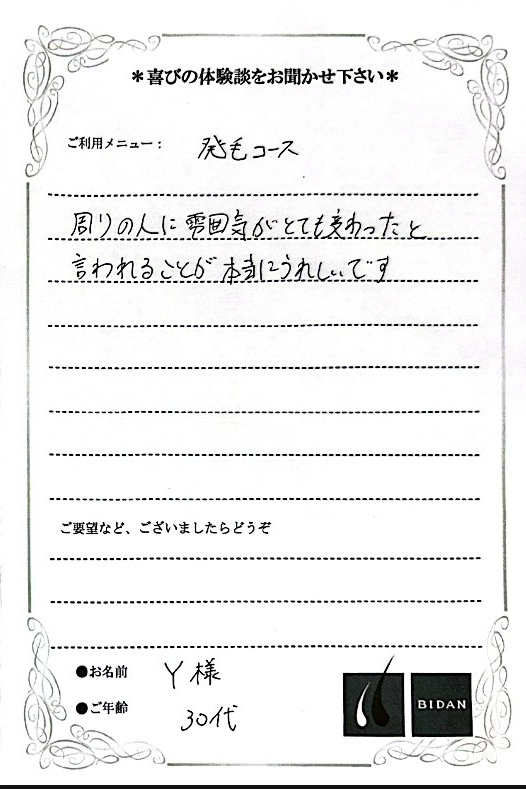 ＊喜びの体験談をお聞かせ下さい＊
ご利用メニュー： 発毛コース
周りの人に雰囲気がとても変わったと
言われることが本当にうれしいです
ご要望など、ございましたらどうぞ
●お名前 Y様
●ご年齢 30代
BIDAN